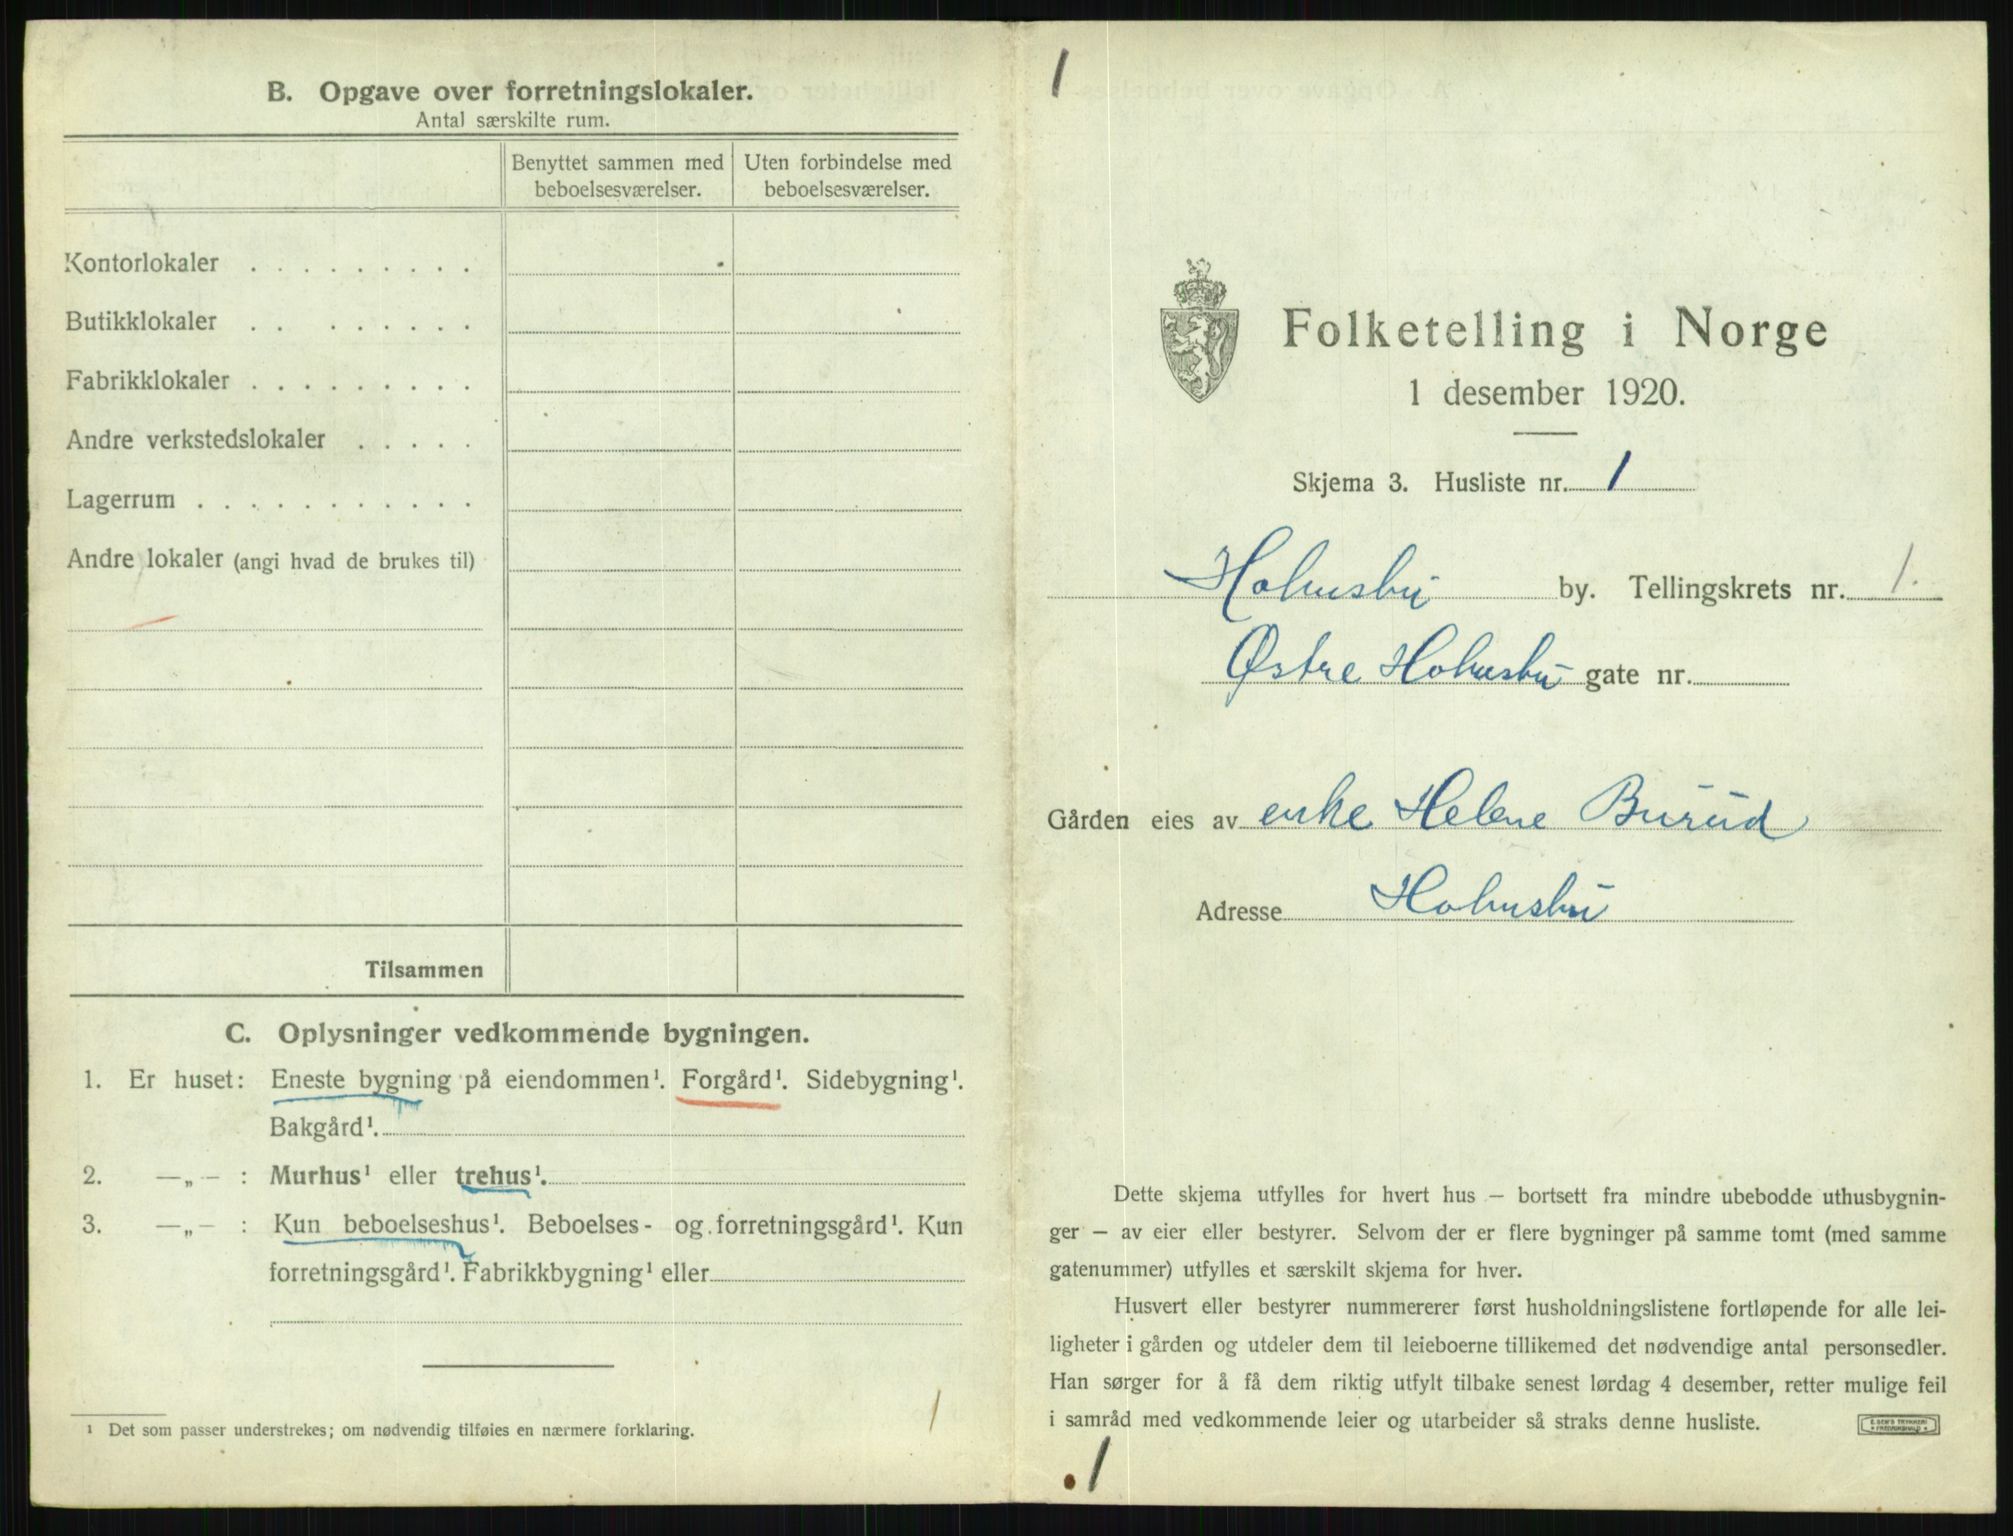 B. Opgave over forretningslokaler.
Antal særskilte rum.
Benyttet sammen med beboelsesværelser.
Uten forbindelse med beboelsesværelser.
Kontorlokaler . . . . . . . . .
Butikklokaler . . . . . . . .
Fabrikklokaler . . . . . . . . .
Andre verkstedslokaler . . . . .
Lagerrum . . . . . . . . . . .
Andre lokaler (angi hvad de brukes til)
Tilsammen
C. Oplysninger vedkommende bygningen.
1. Er huset: Eneste bygning på eiendommen¹. Forgård¹. Sidebygning¹.
Bakgård¹.
2. —„— : Murhus¹ eller trehus¹.
3. —„— : Kun beboelseshus¹. Beboelses- og forretningsgård¹. Kun
forretningsgård¹. Fabrikkbygning¹ eller
¹ Det som passer understrekes; om nødvendig tilføies en nærmere forklaring.
1
Folketelling i Norge
1 desember 1920.
Skjema 3. Husliste nr. 1
Holmsbu by. Tellingskrets nr. 1.
Østre Holmsbu gate nr.
Gården eies av enke Helene Burud
Adresse Holmsbu
Dette skjema utfylles for hvert hus — bortsett fra mindre ubebodde uthusbygnin-
ger — av eier eller bestyrer. Selvom der er flere bygninger på samme tomt (med samme
gatenummer) utfylles et særskilt skjema for hver.
Husvert eller bestyrer nummererer først husholdningslistene fortløpende for alle lei-
ligheter i gården og utdeler dem til leieboerne tillikemed det nødvendige antal personsedler.
Han sørger for å få dem riktig utfylt tilbake senest lørdag 4 desember, retter mulige feil
i samråd med vedkommende leier og utarbeider så straks denne husliste.
1